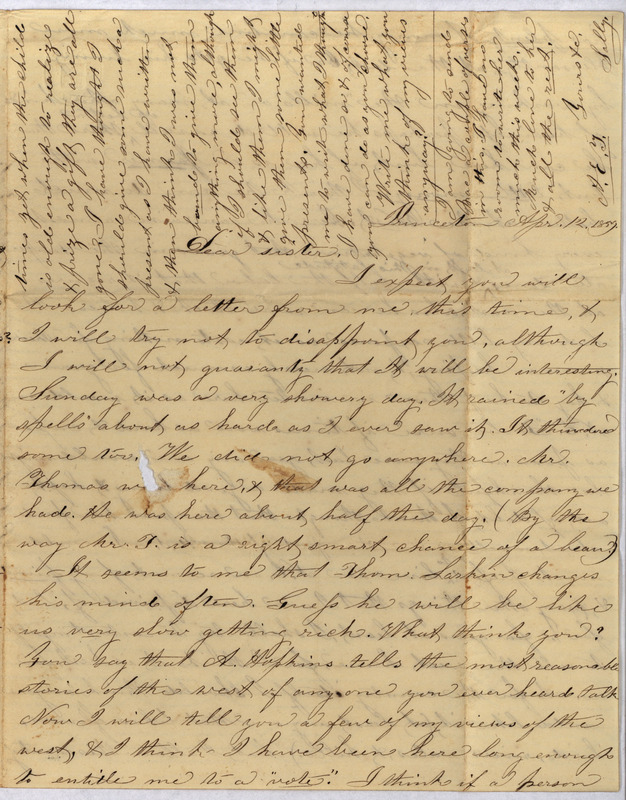 Princeton Apr. 12, 1859.
Dear sister.
I expect you will
look for a letter from me this time, &
I will try not to disappoint you, although
I will not guaranty that It will be interesting.
Sunday was a very showery day. It rained "by
spells" about as hard as I ever saw it. It thundered
some too. We did not go anywhere. Mr.
Thomas was here, & that was all the company we
had. He was here about half the day. (By the
way Mr. T. is a right smart chance of a beau)
It seems to me that Thom. Larkin changes
his mind often. Guess he will be like
us very slow getting rich. What think you?
You say that A. Hopkins tells the most reasonable
stories of the west of any one you ever heard talk
Now I will tell you a few of my views of the
west, & I think I have been here long enough
to entitle me to a "vote". I think if a person
times yet when the child
is old enough to realize
& prize a gift they are all
gone. I have thought I
should give one such a
present as I have written
& then think I was not
bound to give them
anything more, although
if I should see them
& like them I might
give them some little
presents. You wanted
me to write what I thought
I have done so & of course
you can do as you choose.
Write me what you
think of my views
anyway.
I am going to send
in this. I have no
room to write her
much this week.
Much love to her
& all the rest.
Yours &c.
A. E. T. Sally.